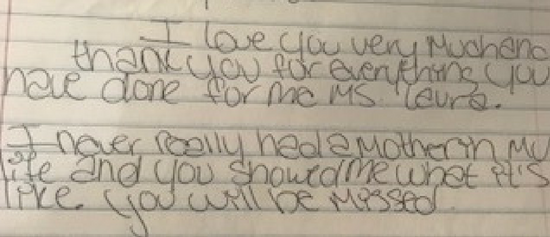 I love you very much and
thank you for everything you
have done for me Ms. Laura.
I never really had a Mother in My
life and you showed me what it's
like. you will be Missed